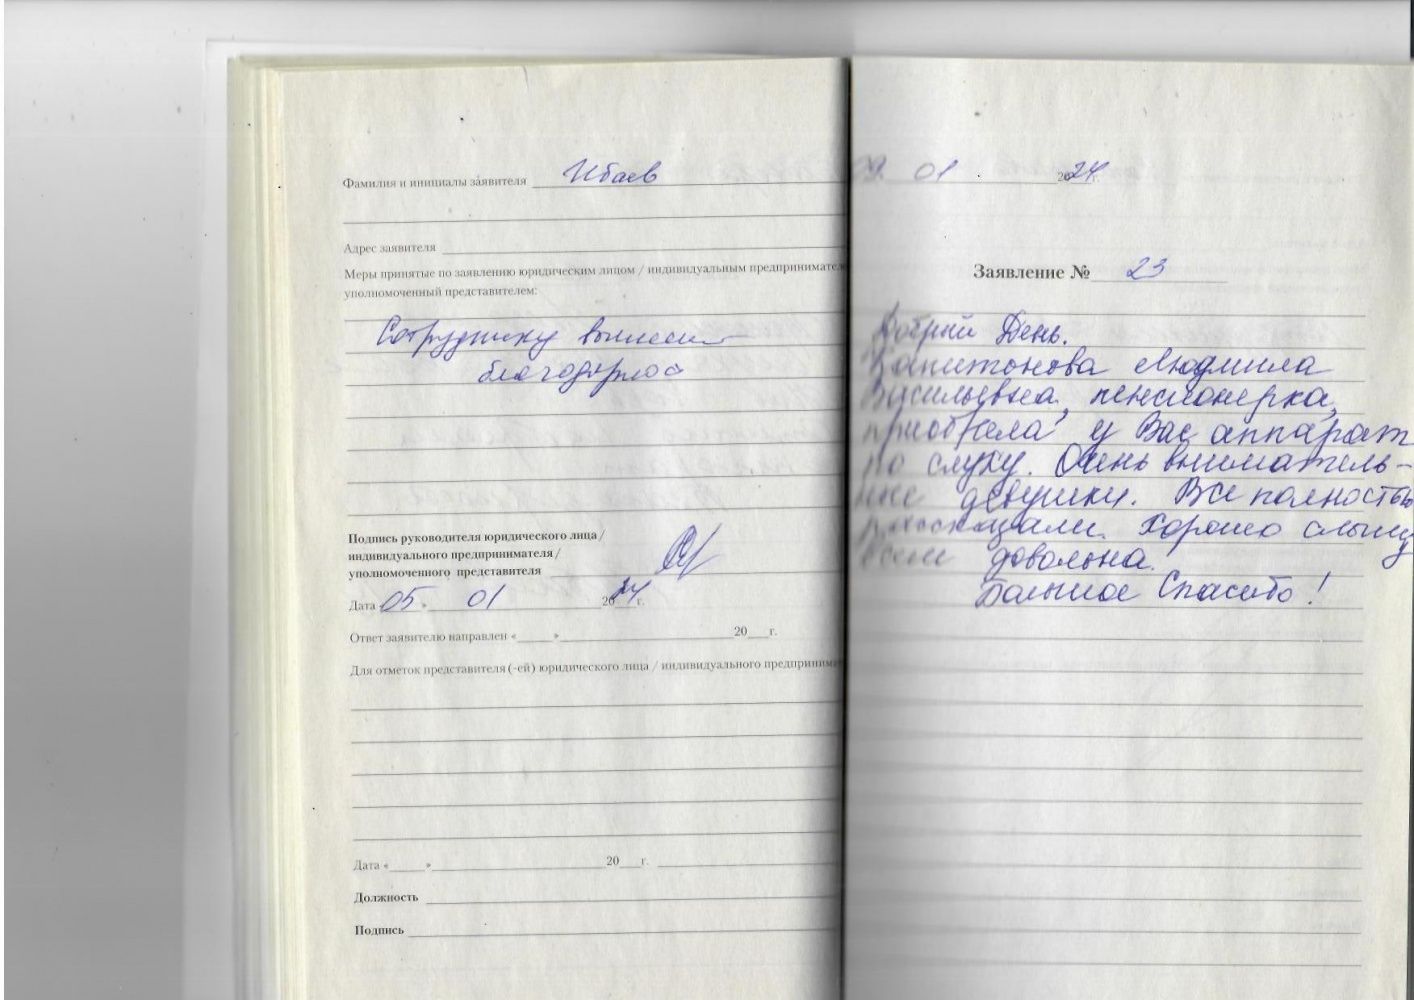 Фамилия и инициалы заявителя Ибаев
Адрес заявителя
Меры принятые по заявлению юридическим лицом / индивидуальным предпринимател
уполномоченный представителем:
Сотруднику
Подпись руководителя юридического лица /
индивидуального предпринимателя /
уполномоченного представителя
Дата «05 » 01 2024 г.
Ответ заявителю направлен « » 20 г.
Для отметок представителя (-ей) юридического лица / индивидуального предпринима
Дата « » 20 г.
Должность
Подпись
09. 01 2024 г.
Заявление № 23
Добрый День.
Капитонова Людмила
Васильевна, пенсионерка,
приобрела у Вас аппарат
по слуху. Очень вниматель-
ные девушки. Все полностью
рассказали. Хорошо слышу
всем довольна.
Большое Спасибо!